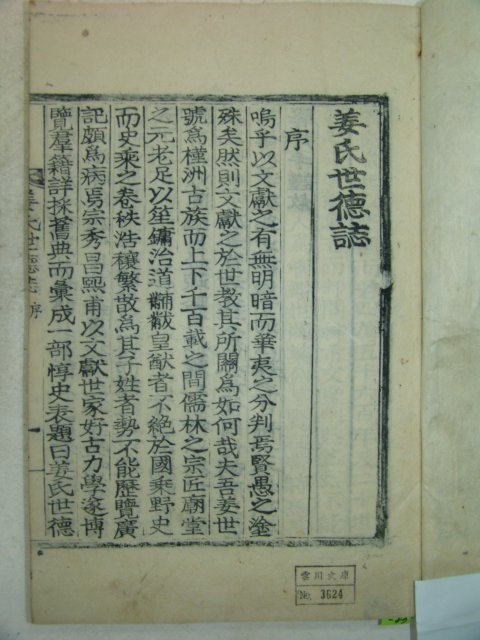 姜氏世德誌
序
嗚乎以文獻之有無明暗而華夷之分判焉賢愚之塗
殊矣然則文獻之於世敎其所關爲如何哉夫吾姜世
號爲槿洲古族而上下千百載之間儒林之宗匠廟堂
之元老足以笙鏞治道黼黻皇猷者不絶於國乘野史
而史乘之卷秩浩穰繁散爲其子姓者勢不能歷覽廣
記頗爲病焉宗秀昌熙甫以文獻世家好古力學遂博
覽羣籍詳採舊典而彙成一部惇史表題曰姜氏世德
姜氏世德誌 序
雲川文庫
No. 3624